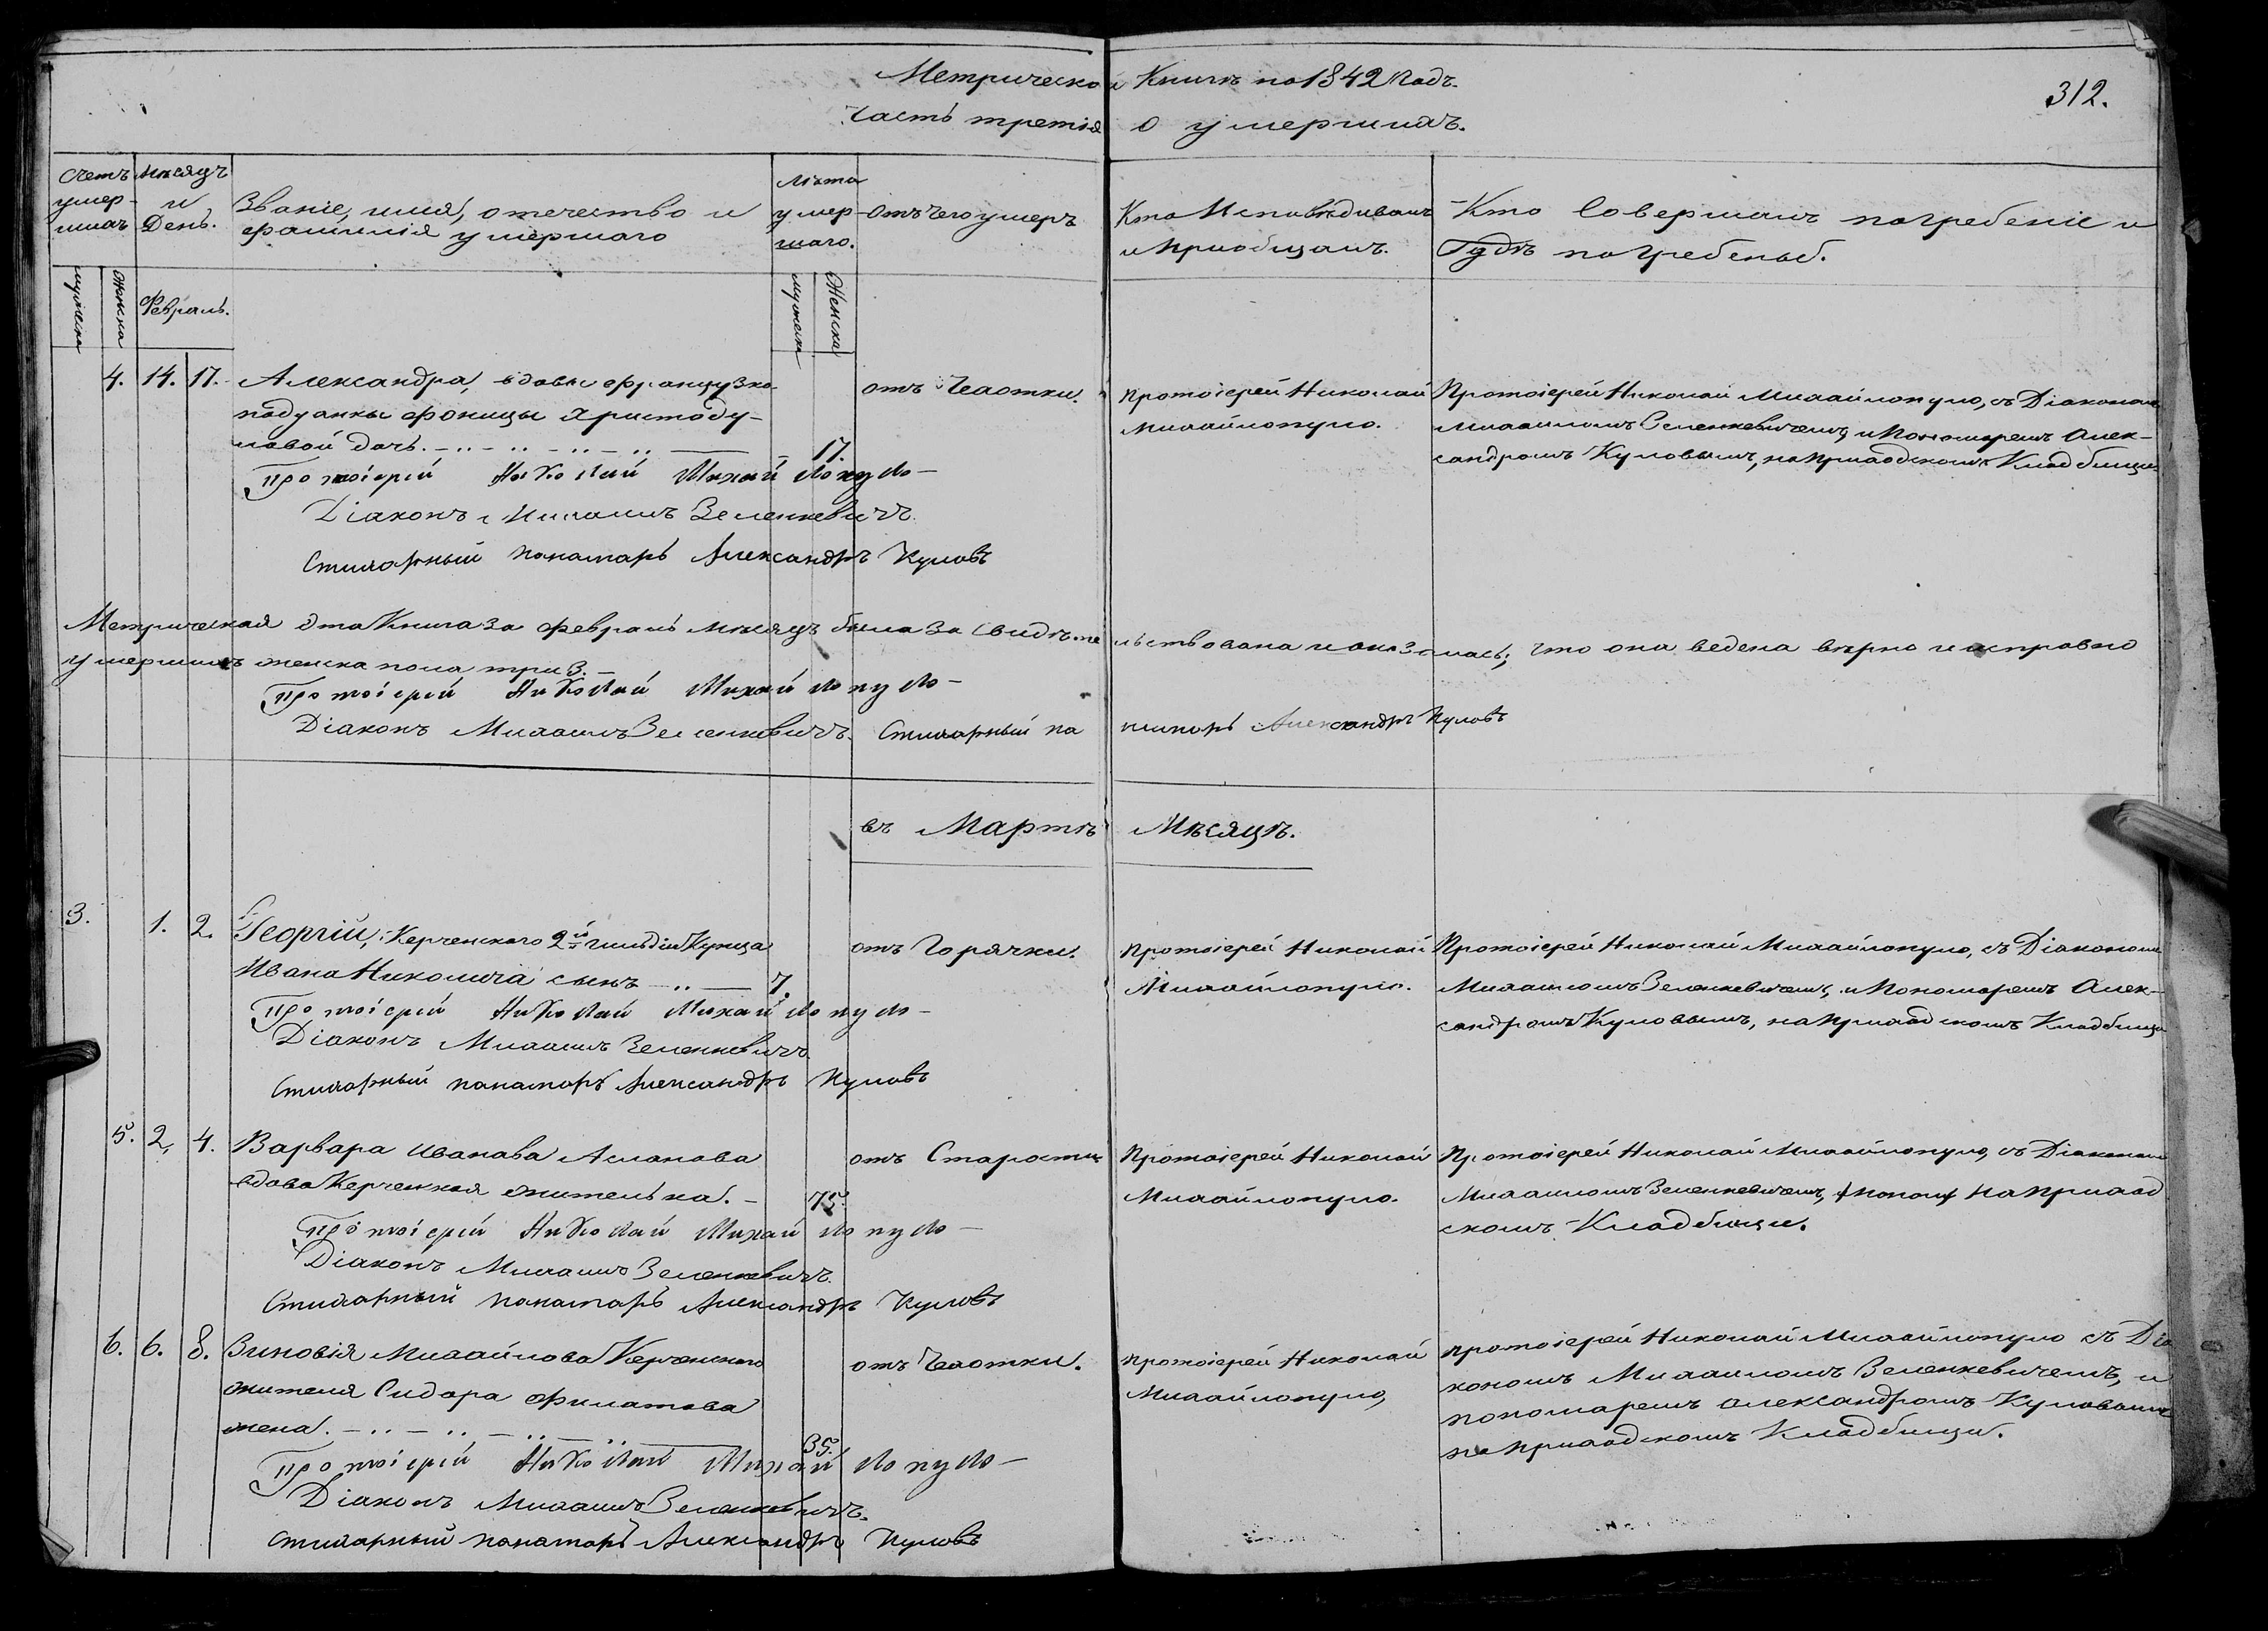 Метрической Книги на 1842 Годъ.
312.
Часть третія о умершихъ.
Счетъ умер-шихъ
Мѣсяцъ и День.
Званіе, имя, отечество и фамилія умершаго
Лѣта умер-шаго.
Отъ чего умеръ
Кто Исповѣдивалъ и приобщалъ.
Кто Совершалъ погребеніе и Гудѣ погребены.
мужеска
женска
Февраль.
мужеска
Женска
4. 14. 17. Александра, вдовы французко-
подданки Фоницы Христоду-
ловой дочь. 17.
отъ Чаотки.
Протоіерей Николай
Михайлопуло.
Протоіерей Николай Михайлопуло, съ Діакономъ
Михаиломъ Зеленкевичемъ, и Пономаремъ Алек-
сандромъ Куловымъ, на приходскомъ Кладбищи
Протоіерей Николай Михайлопуло
Діаконъ Михаилъ Зеленкевичъ.
Стихарный панамарь Александръ Куловъ
Метрическая эта Книга за Февраль мѣсяцъ была засвидѣтельствована и оказалась; что она ведена вѣрно и исправно
умершихъ женска пола три 3.
Протоіерей Николай Михайлопуло
Діаконъ Михаилъ Зеленкевичъ. Стихарный панамарь Александръ Куловъ
въ Мартѣ Мѣсяцѣ.
3. 1. 2. Георгій, Керченскаго 2й гильдіи Купца
Ивана Николича сынъ 7.
отъ Горячки.
Протоіерей Николай
Михайлопуло.
Протоіерей Николай Михайлопуло, съ Діакономъ
Михаиломъ Зеленкевичемъ, и Пономаремъ Алек-
сандромъ Куловымъ, на приходскомъ Кладбищи
Протоіерей Николай Михайлопуло
Діаконъ Михаилъ Зеленкевичъ.
Стихарный панамарь Александръ Куловъ
5. 2. 4. Варвара Иванава Асланова
вдова Керченская жителька. 75.
отъ Старости
Протоіерей Николай
Михайлопуло.
Протоіерей Николай Михайлопуло, съ Діакономъ
Михаиломъ Зеленкевичемъ, на приход
скомъ Кладбищи.
Протоіерей Николай Михайлопуло
Діаконъ Михаилъ Зеленкевичъ.
Стихарный панамарь Александръ Куловъ
6. 6. 8. Зиновія Михайлова Керченскаго
жителя Сидора Филатова
жена. 35.
отъ Чаотки.
Протоіерей Николай
Михайлопуло,
Протоіерей Николай Михайлопуло съ Діа
кономъ Михаиломъ Зеленкевичемъ, и
пономаремъ Александромъ Куловымъ
на приходскомъ Кладбищи.
Протоіерей Николай Михайлопуло
Діаконъ Михаилъ Зеленкевичъ.
Стихарный панамарь Александръ Куловъ